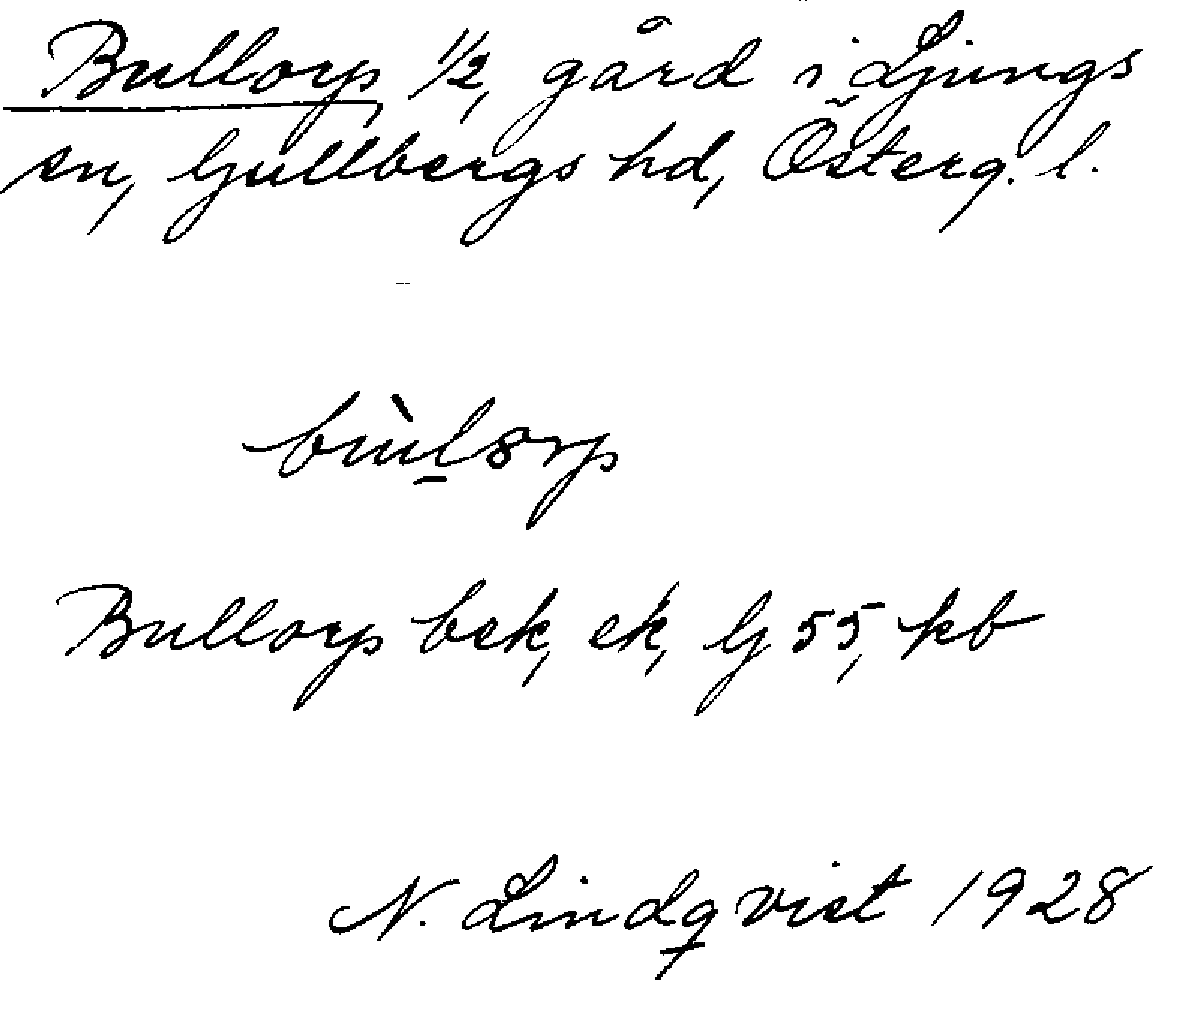 Bullorp 1/2, gård i Ljungs
sn, Gullbergs hd, Österg. l.
Bullorp bek, ek, G 55, kb
N. Lindqvist 1928